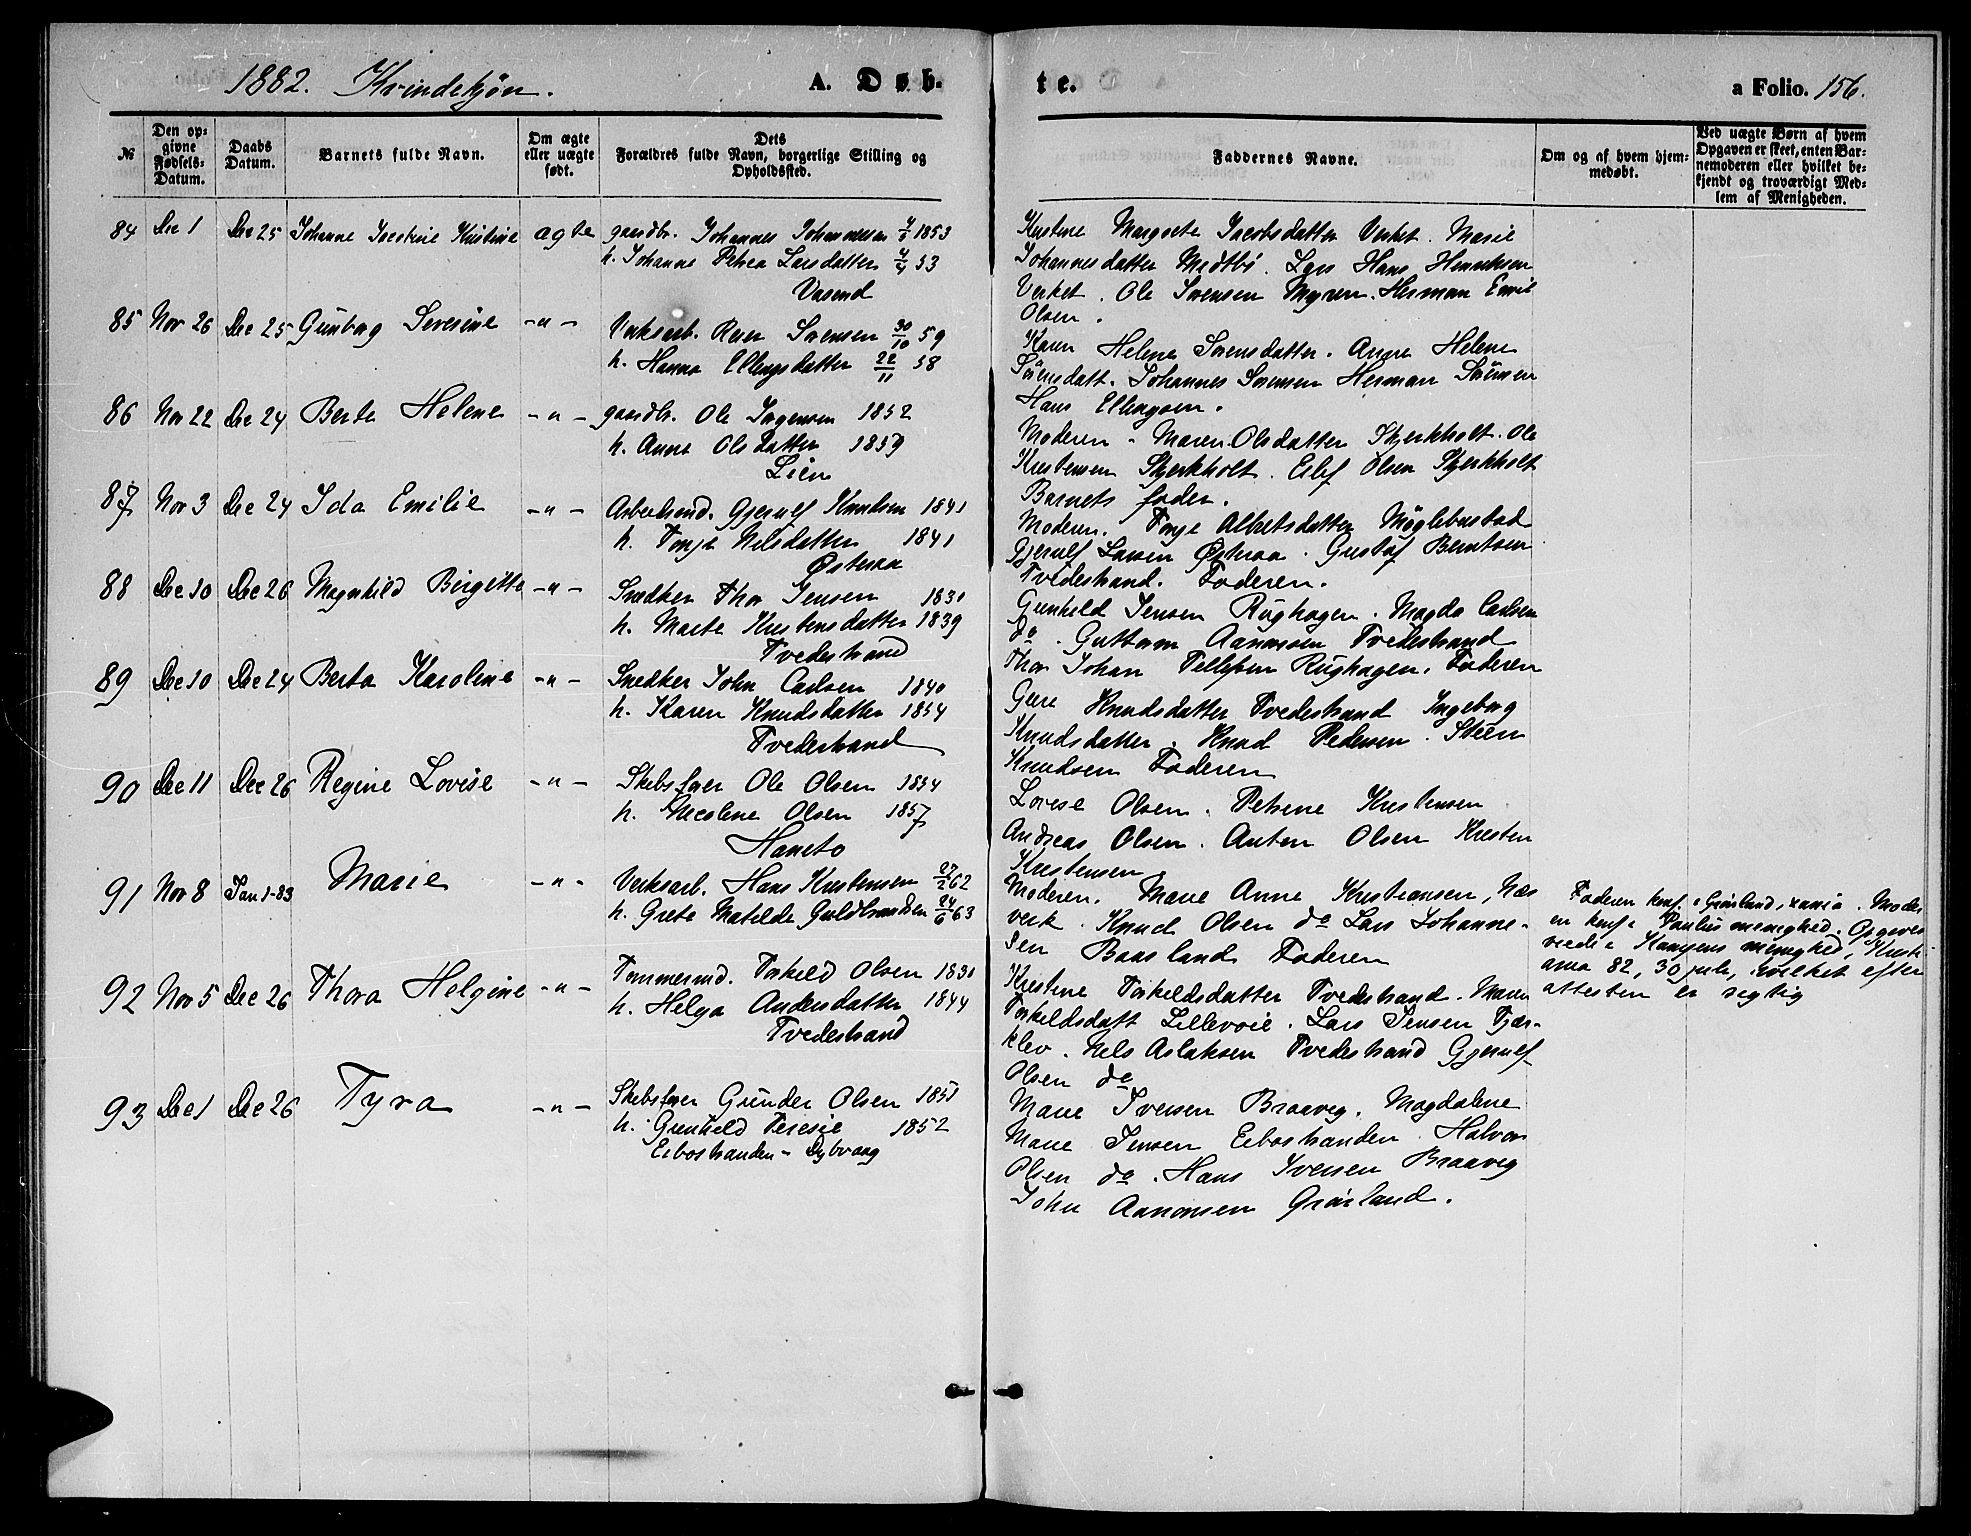 1882. Kvindekjøn.
A. Døb-
te.
a Folio. 156.
№
Den op-
givne
Fødsels-
Datum.
Daabs
Datum.
Barnets fulde Navn.
Om ægte
eller uægte
født.
Dets
Forældres fulde Navn, borgerlige Stilling og
Opholdssted.
Faddernes Navne.
Om og af hvem hjem-
medøbt.
Ved uægte Børn af hvem
Opgaven er skeet, enten Bar-
nemoderen eller hvilket be-
kjendt og troværdigt Med-
lem af Menigheden.
84 Dec 1 Dec 25 Johanne Kristine ægte
gaardbr. Johannes Johannesen 1853
h. Johanne Petrea Larsdatter 4/4 53
Vasend
Kristine Margrete Jacobsdatter Verket. Marie
Johannesdatter Midtbö. Lars Hans Henriksen
Verket. Ole Sörensen Myren. Herman Emil
Olsen.
85 Nov 26 Dec 25 Gunborg Severine -"-
Verksarb. Sörensen 30/10 59
h. Hanna Ellingsdatter 22/11 58
Karen Helene Sörensdatter. Anne Helene
Sörensdatt. Johannes Sörensen Herman Sörensen
Hans Ellingsen.
86 Nov 22 Dec 24 Berte Helene -"-
gaardbr. Ole Jörgensen 1852
h. Anne Olsdatter 1859
Lien
Moderen. Maren Olsdatter Skjerkholt. Ole
Kristensen Skjerkholt. Eilef Olsen Skjerkholt
Barnets fader.
87 Nov 3 Dec 24 Ida Emilie -"-
Arbeidsmd. Gjerulf Knudsen 1841
h. Tonje Nilsdatter 1841
Østeraa
Moderen. Tonje Albretsdatter Möglebustad
Gjerulf Larsen Østeraa. Gustaf Berntsen
Tvedestrand. Faderen.
88 Dec 10 Dec 26 Magnhild Birgitte -"-
Snedker Thor Jensen 1830
h. Marte Kristensdatter 1839
Tvedestrand
Gunhild Jensen Rughagen. Magda Carlsen
do. Guttorm Aanonsen Tvedestrand
Thor Johan Tellefsen Rughagen. Faderen
89 Dec 10 Dec 24 Berta Karoline -"-
Snedker John Carlsen 1840
h. Karen Knudsdatter 1854
Tvedestrand
Knudsdatter Tvedestrand Ingeborg
Knudsdatter. Knud Pedersen. Steen
Knudsen Faderen
90 Dec 11 Dec 26 Regine Lovise -"-
Skibsfører Ole Olsen 1854
h. Nicoline Olsen 1857
Hanetø
Lovise Olsen. Petrine Kristensen
Andreas Olsen. Anton Olsen Kristen
Kristensen
91 Nov 8 Jan 1-83 Marie -"-
Verksarb. Hans Kristensen 27/2 62
h. Grete Matilde Guldbrandsen 24/6 63
Moderen. Marie Anne Kristiansen, Næs
verk. Knud Olsen do Lars Johanne-
sen Baasland. Faderen
Faderen konf. i Grönland, xania. Moder
en konf i Paulus menighed. Opgives
viede i Kampens menighed, Kristi
ania 82, 30 juli, hvilket efter
attesten er rigtig
92 Nov 5 Dec 26 Thora Helgine -"-
Tömmermd. Torkild Olsen 1830
h. Helga Andersdatter 1844
Tvedestrand
Kristine Torkildsdatter Tvedestrand. Maren
Torkildsdatt Lilleveie. Lars Jensen Tjær-
klev. Nils Aslaksen Tvedestrand Gjerulf
Olsen do
93 Dec 1 Dec 26 Tyra -"-
Skibsfører Gunder Olsen 1851
h. Gunhild Teresie 1852
Eibostranden - Dybvaag
Marie Iversen Braaveg. Magdalene
Marie Jensen Eibostranden. Halvor
Olsen do. Hans Iversen Braaveg
John Aanonsen Grönland.